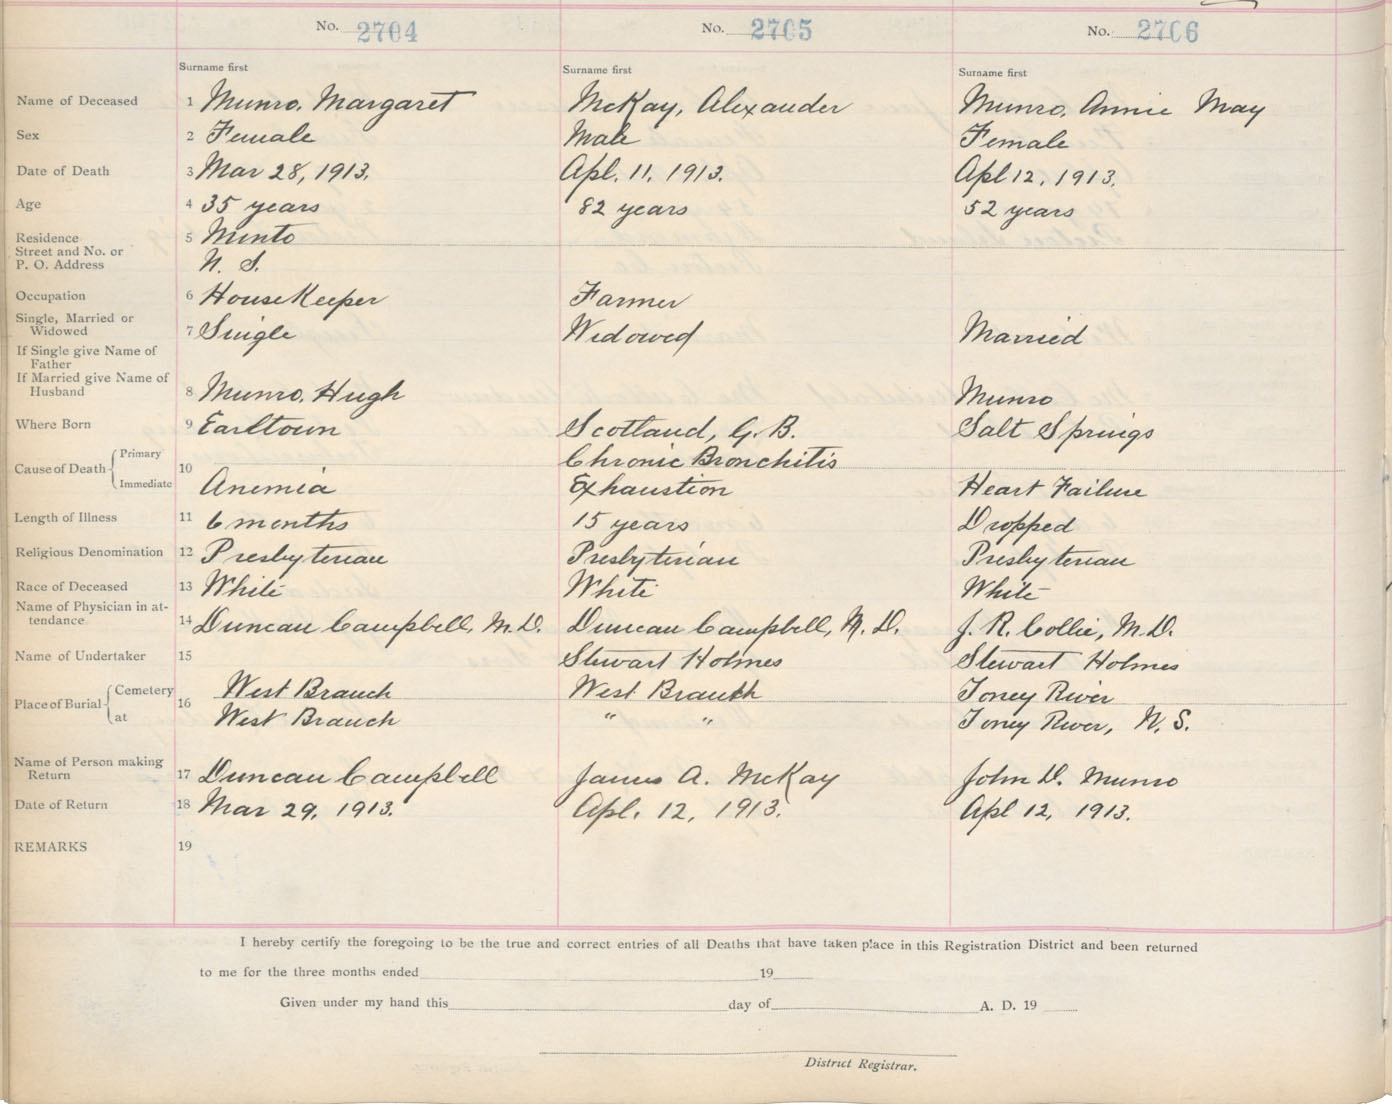 No. 2704 No. 2705 No. 2706
Surname first Surname first Surname first
Name of Deceased 1 Munro, Margaret McKay, Alexander Munro, Annie May
Sex 2 Female Male Female
Date of Death 3 Mar 28, 1913. Apl. 11, 1913. Apl 12, 1913.
Age 4 35 years 82 years 52 years
Residence 5 Minto
Street and No. or
P. O. Address N. S.
Occupation 6 HouseKeeper Farmer
Single, Married or
Widowed 7 Single Widowed Married
If Single give Name of
Father
If Married give Name of
Husband 8 Munro, Hugh Munro
Where Born 9 Earltown Scotland, G. B. Salt Springs
Cause of Death Primary 10 Chronic Bronchitis
Immediate Anemia Exhaustion Heart Failure
Length of Illness 11 6 months 15 years Dropped
Religious Denomination 12 Presbyterian Presbyterian Presbyterian
Race of Deceased 13 White White White
Name of Physician in at-
tendance 14 Duncan Campbell, M.D. Duncan Campbell, M. D. J. R. Collie, M.D.
Name of Undertaker 15 Stewart Holmes Stewart Holmes
Place of Burial Cemetery 16 West Branch West Branch Toney River
at West Branch " " Toney River, N. S.
Name of Person making
Return 17 Duncan Campbell James A. McKay John D. Munro
Date of Return 18 Mar 29, 1913. Apl. 12, 1913. Apl 12, 1913.
REMARKS 19
I hereby certify the foregoing to be the true and correct entries of all Deaths that have taken place in this Registration District and been returned
to me for the three months ended 19
Given under my hand this day of A. D. 19
District Registrar.